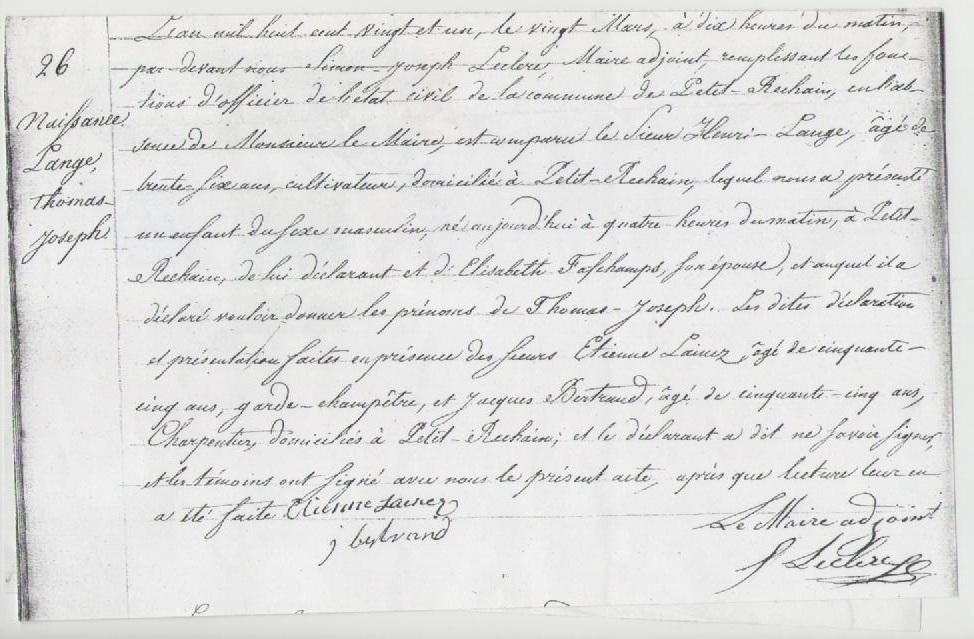 26
Naissance
Lange,
thomas-
joseph.
L'an mil huit cent vingt et un, le vingt Mars, à dix heures du matin,
par-devant nous Simon-Joseph Leclerc, Maire adjoint, remplessant les fonc-
tions d'officier de l'état civil de la commune de Petit-Rechain, en l'ab-
sence de Monsieur le Maire, est comparu le Sieur Henri Lange, âgé de
trente-six ans, cultivateur, domicilié à Petit-Rechain, lequel nous a présenté
un enfant du sexe masculin, né aujourd'hui à quatre heures du matin, à Petit-
Rechain, de lui déclarant et d'Elisabeth Faschamps, son épouse, et auquel il a
déclaré vouloir donner les prénoms de Thomas-Joseph. Les dites déclaration
et présentation faites en présence des sieurs Etienne Lainez, âgé de cinquante-
cinq ans, garde-champêtre, et Jacques Bertrand, âgé de cinquante-cinq ans,
Charpentier, domiciliés à Petit-Rechain; et le déclarant a dit ne savoir signer,
et les témoins ont signé avec nous le présent acte, après que lecture leur en
a été faite Etienne Lainez
j bertrand
Le Maire adjoint
S Leclerc